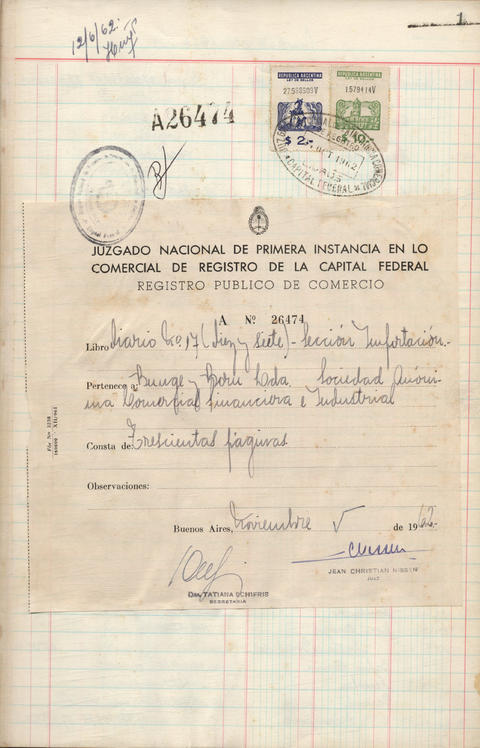 1
12/6/62.
REPUBLICA ARGENTINA
LEY DE SELLOS
$ 2.-
REPUBLICA ARGENTINA
LEY DE SELLOS
A26474
CAPITAL FEDERAL
JUZGADO NACIONAL DE PRIMERA INSTANCIA EN LO
COMERCIAL DE REGISTRO DE LA CAPITAL FEDERAL
REGISTRO PUBLICO DE COMERCIO
A Nº 26474
Libro Diario No. 17 (Diez y Siete) - Sección Importación.-
Pertenece a: Bunge y Born Ltda. Sociedad Anóni-
ma Comercial Financiera e Industrial
Consta de: Trescientas páginas
Observaciones:
Buenos Aires, Noviembre 5 de 1962.-
JEAN CHRISTIAN NISSEN
JUEZ
Dra. TATIANA SCHIFRIS
SECRETARIA